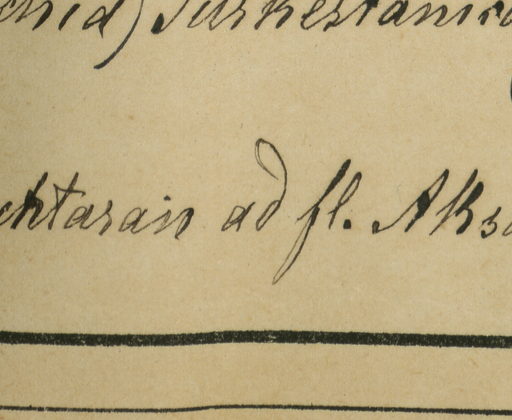 chid) Turkestanico
chtarain ad fl. Aksa